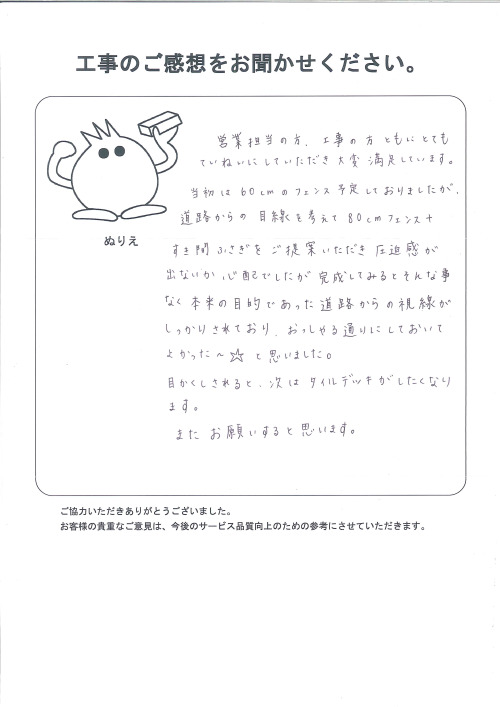 工事のご感想をお聞かせください。
営業担当の方、工事の方ともにとても
ていねいにしていただき大変満足しています。
当初は60cmのフェンス予定しておりましたが、
道路からの目線を考えて80cmフェンス+
すき間ふさぎをご提案いただき圧迫感が
出ないか心配でしたが完成してみるとそんな事
なく本来の目的であった道路からの視線が
しっかりされており、おっしゃる通りにしておいて
よかった〜☆と思いました。
目かくしされると、次はタイルデッキがしたくなり
ます。
またお願いすると思います。
ぬりえ
ご協力いただきありがとうございました。
お客様の貴重なご意見は、今後のサービス品質向上のための参考にさせていただきます。